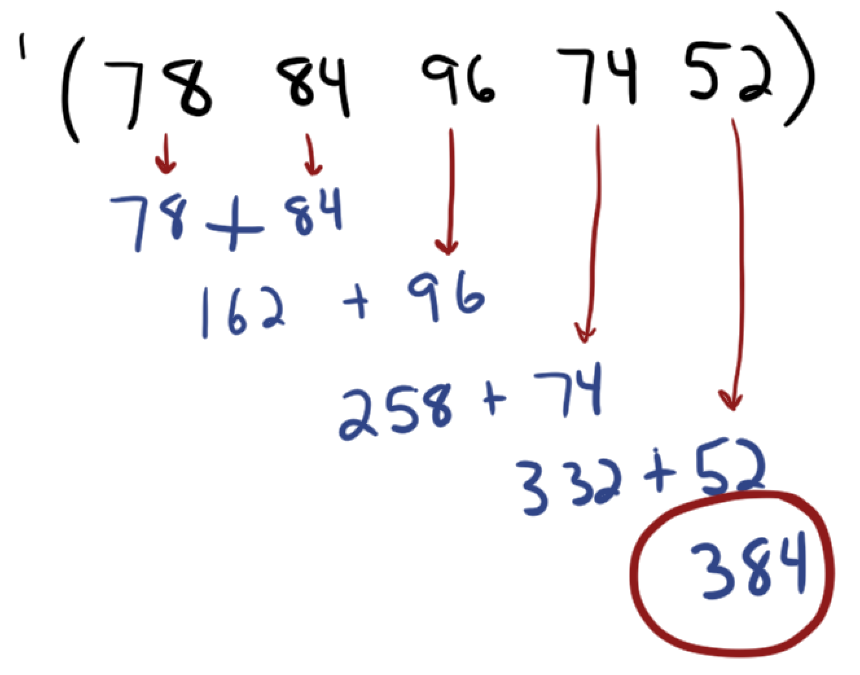 '(78 84 96 74 52)
78 + 84
162 + 96
258 + 74
332 + 52
384